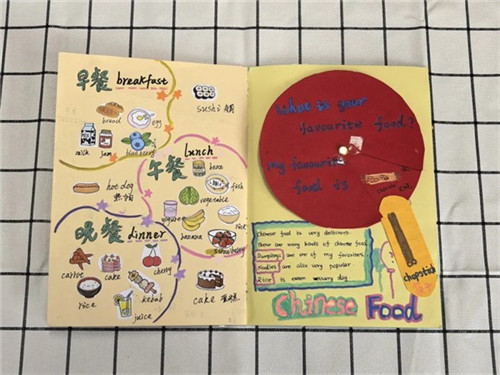 早餐 breakfast
bread
egg
sushi
milk
jam
blueberry
午餐 lunch
hot dog
热狗
fish
vegetable
yogurt
rice
banana
晚餐 dinner
carrot
cake
cherry
rice
kebab
juice
cake 蛋糕
What is your
favourite food?
My favourite
food is
chopsticks
Chinese food is very delicious.
There are many kinds of chinese food.
Dumplings are one of my favorites.
Noodles are also very popular.
Rice is eaten every day
Chinese Food